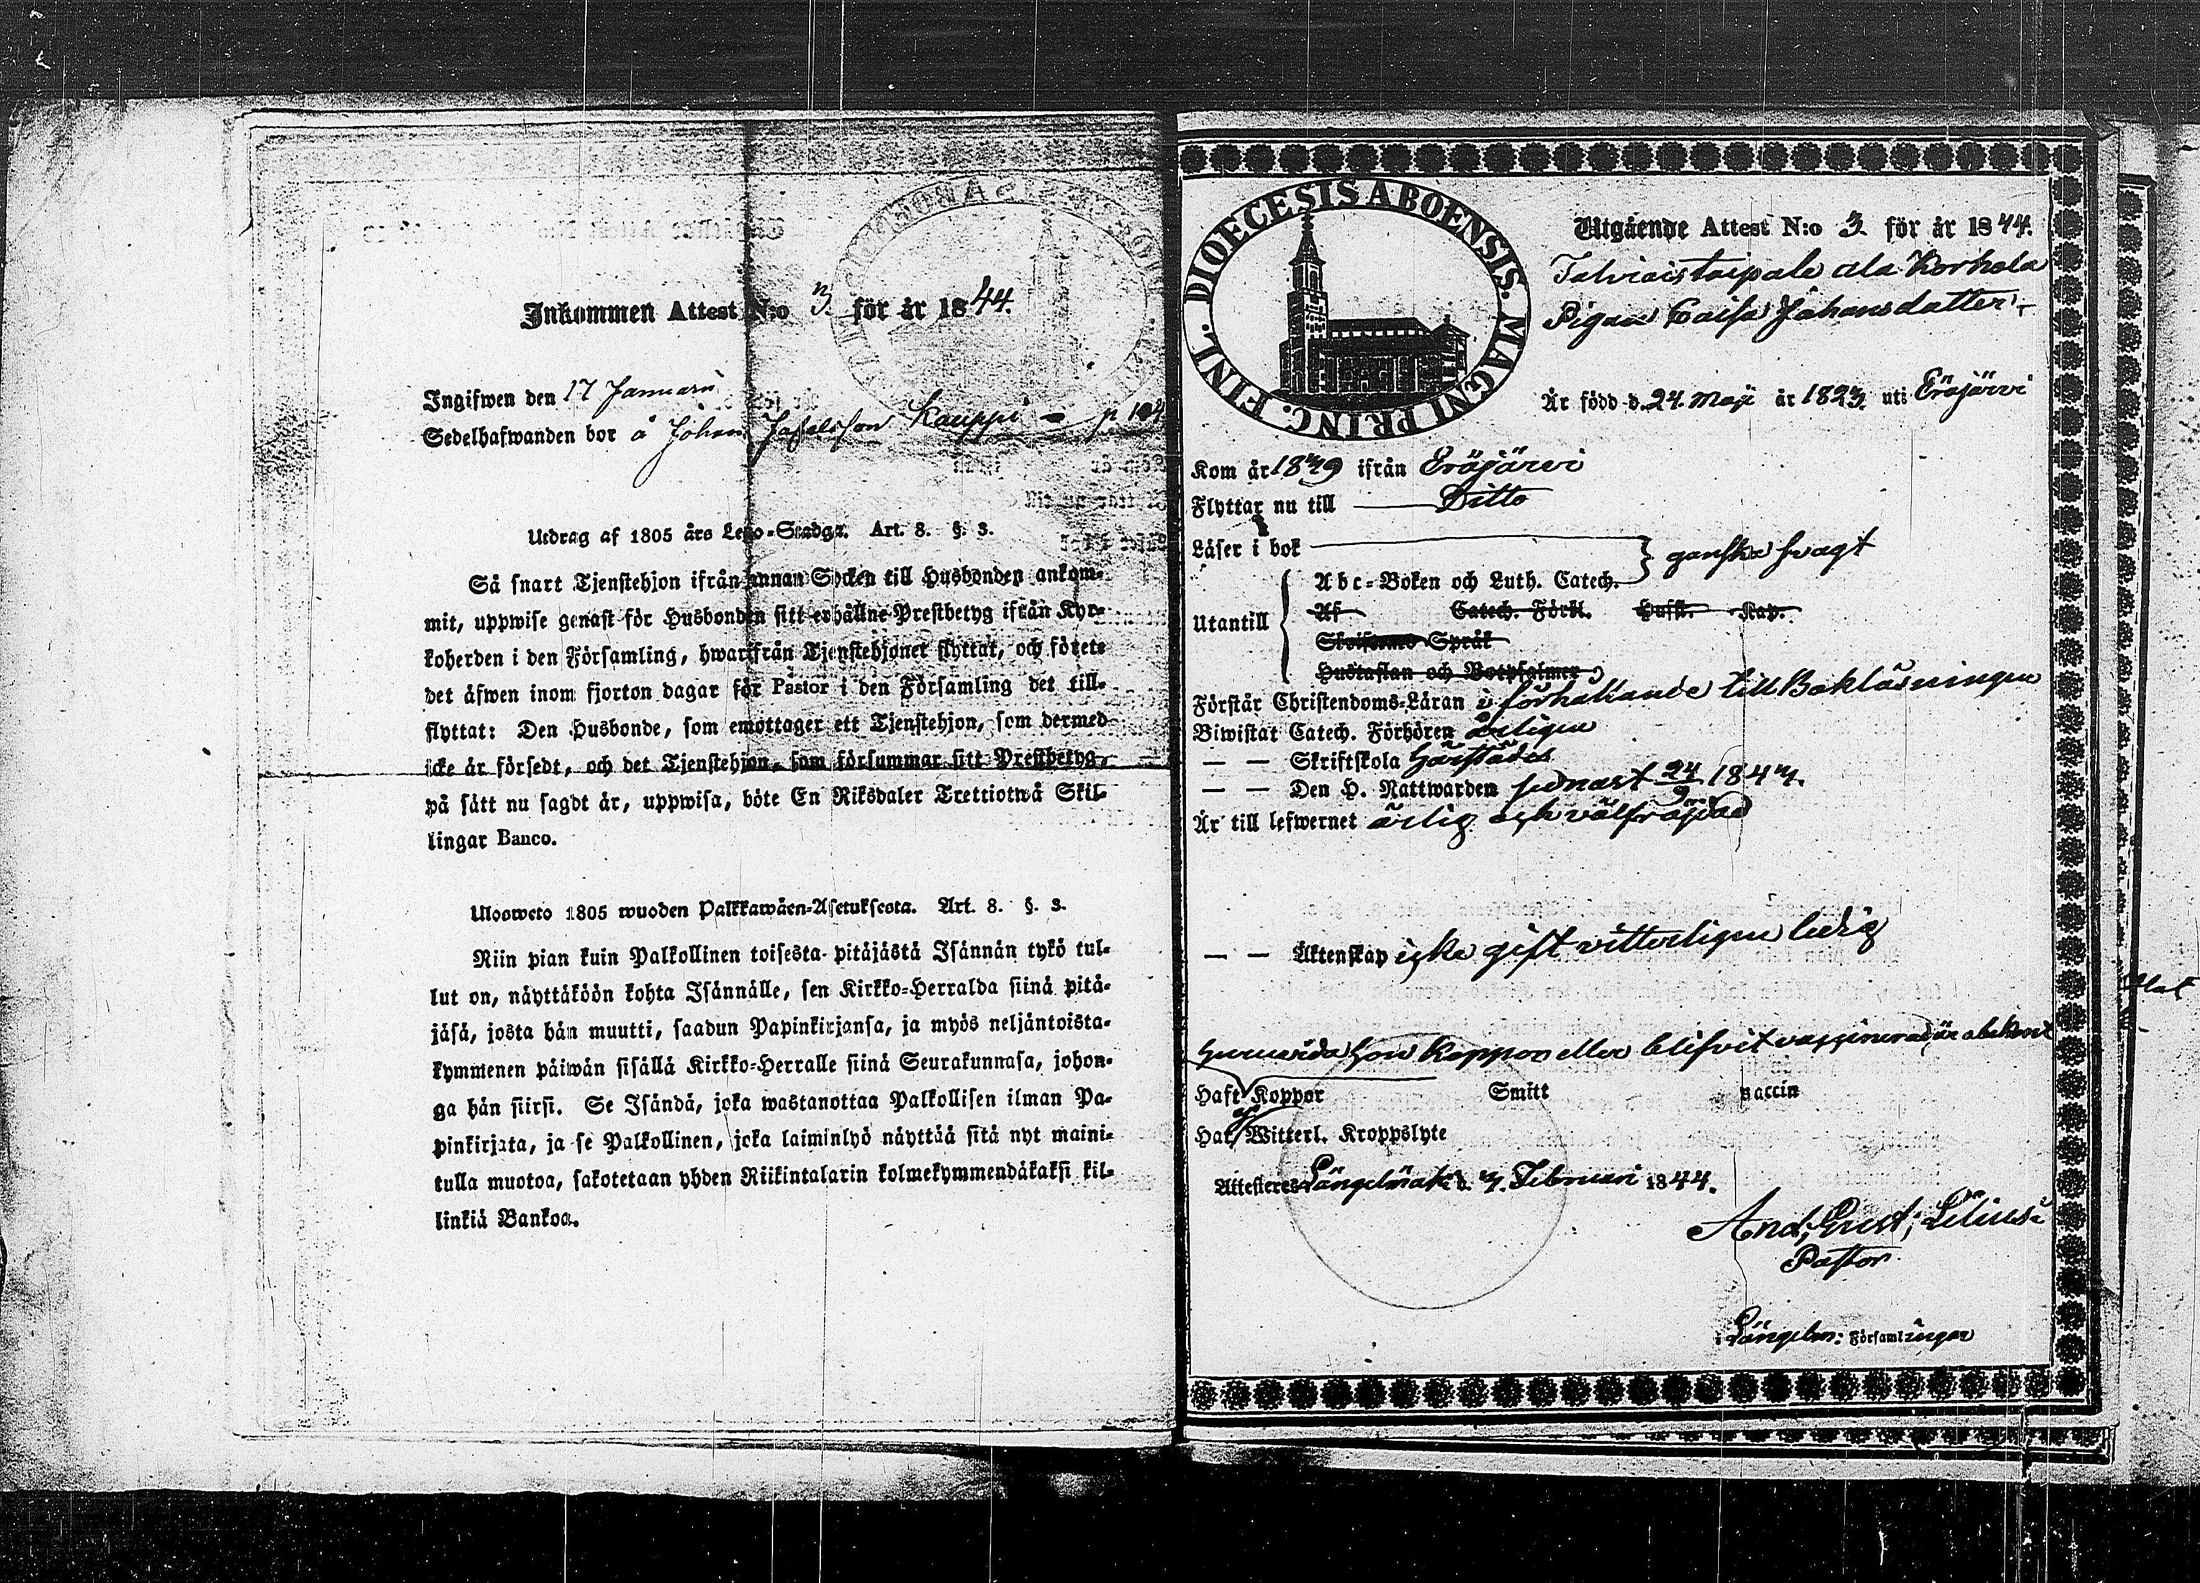 Inkommen Attest N:o 3. för år 1844.
Ingifwen den 17 Januarii
Sedelhafwanden bor å Johan Kauppi p. 144
Utdrag af 1805 års Lego-Stadga. Art. 8. §. 3.
Så snart Tjenstehjon ifrån annan Socken till Husbonden ankom-
mit, uppwise genast för Husbonden sitt erhållne Prestbetyg ifrån Kyr-
koherden i den Församling, hwarifrån Tjenstehjonet flyttat, och förete
det äfwen inom fjorton dagar för Pastor i den Församling det till-
flyttat: Den Husbonde, som emottager ett Tjenstehjon, som dermed
icke är försedt, och det Tjenstehjon, som försummar sitt Prestbetyg,
på sätt nu sagdt är, uppwisa, böte En Riksdaler Trettiotwå Skil-
lingar Banco.
Ulosweto 1805 wuoden Palkkawäen-Asetuksesta. Art. 8. §. 3.
Niin pian kuin Palkollinen toisesta pitäjästä Isännän tykö tul-
lut on, näyttäköön kohta Isännälle, sen Kirkko-Herralda siinä pitä-
jäsä, josta hän muutti, saadun Papinkirjansa, ja myös neljäntoista-
kymmenen päiwän sisällä Kirkko-Herralle siinä Seurakunnasa, johon-
ga hän siirsi. Se Isändä, joka wastanottaa Palkollisen ilman Pa-
pinkirjata, ja se Palkollinen, joka laiminlyö näyttää sitä nyt maini-
tulla muotoa, sakotetaan yhden Riikintalarin kolmekymmendäkaksi kil-
linkiä Bankoa.
DIOECESIS ABOENSIS. MAGNI PRINC. FINL.
Utgående Attest N:o 3 för år 1844.
Talviaistaipale ala Korhola
Pigan Caisa Johansdatter
Är född d. 24 Maji år 1823 uti Eräjärvi
Kom år 1839 ifrån Eräjärvi
Flyttar nu till Ditto
Läser i bok
ganska svagt
Utantill
Abc-Boken och Luth. Catech.
Af Catech. Förkl. Hufst. Kap.
Skriftenes Språk
Hustaflan och Botpsalmer
Förstår Christendoms-Läran i förhållande till Bokläsningen
Biwistat Catech. Förhören årligen
— — Skriftskola härstädes
— — Den H. Nattwarden sednast 24/9 1843.
Är till lefwernet ärlig och välfräjdad
— — Äktenskap icke gift vitterligen ledig
Huruvida hon Koppor eller blifvit vaccinerad är obekant
Haft Koppor Smitt vaccin
Har ej Witterl. Kroppslyte
Attesteres Längelmäki d. 7. Februari 1844.
And. Gust. Lilius
Pastor
Längelm: Församlingar